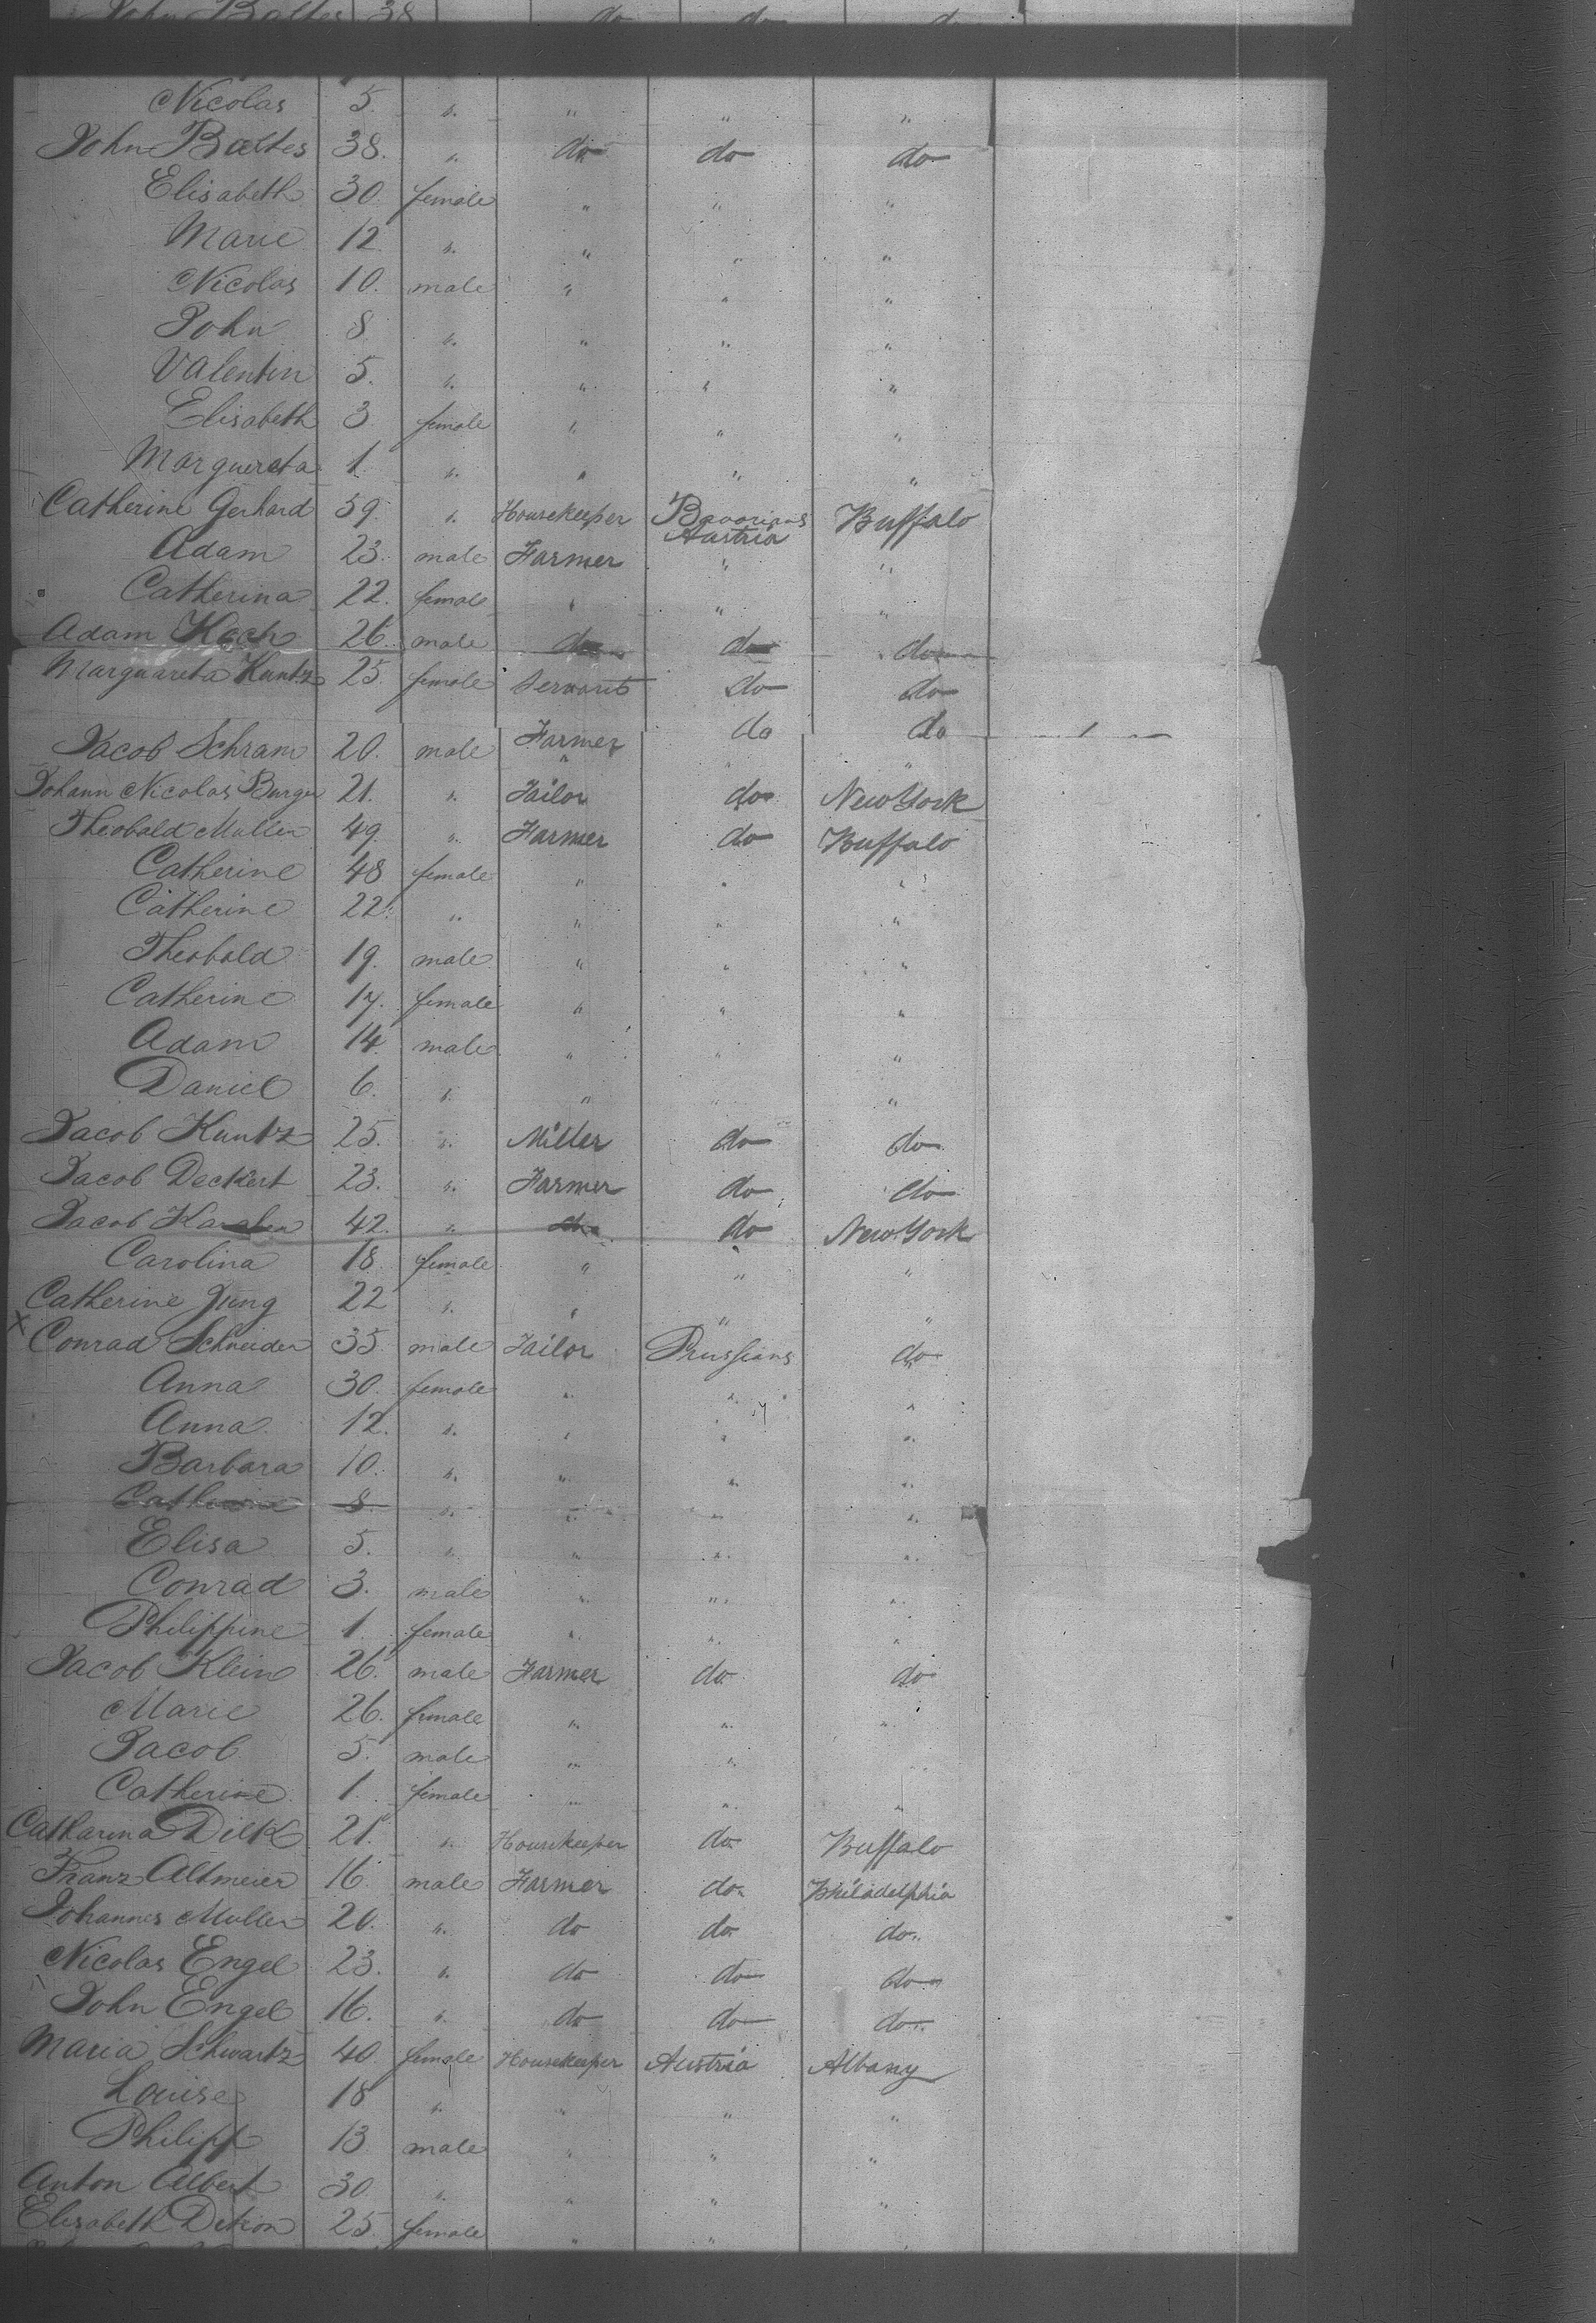 John Baltes 38 do do do
Nicolas 5. " " " "
John Baltes 38. " do do do
Elisabeth 30. female " " "
Marie 12 " " " "
Nicolas 10. male " " "
John 8 " " " "
Valentin 5. " " " "
Elisabeth 3 female " " "
Margureta 1 " " " "
Catherine Gerhard 59. " Housekeeper Bavarians Buffalo
Austria
Adam 23. male Farmer " "
Catherina 22. female " " "
Adam Koch 26. male do do do
Marguareta Kuntz 25. female Servant do do
Jacob Schram 20. male Farmer do do
" " "
Johann Nicolas Burger 21. " Tailor do New York
Theobald Muller 49. " Farmer do Buffalo
Catherine 48 female " " "
Catherine 22. " " " "
Theobald 19. male " " "
Catherine 17. female " " "
Adam 14. male " " "
Daniel 6. " " " "
Jacob Kuntz 25. " Miller do do
Jacob Deckert 23. " Farmer do do
Jacob 42. " do do New York
Carolina 18. female " " "
Catherine Jung 22 " " " "
x Conrad Schneider 35. male Tailor Prussians do
Anna 30. female " " "
Anna 12. " " " "
Barbara 10. " " " "
Catherine 8. " " " "
Elisa 5. " " " "
Conrad 3. male " " "
Philippine 1. female " " "
Jacob Klein 26. male Farmer do do
Marie 26. female " " "
Jacob 5. male " "
Catherine 1. female " " "
Catharina Dilk 21. " Housekeeper do Buffalo
Franz Altmeier 16. male Farmer do Philadelphia
Johannes Muller 20. " do do do
Nicolas Engel 23. " do do do
John Engel 16. " do do do
Maria Schwartz 40. female Housekeeper Austria Albany
Louise 18 " " " "
Philipp 13 male " " "
Anton Albert 30. " " " "
Elisabeth 25. female " "